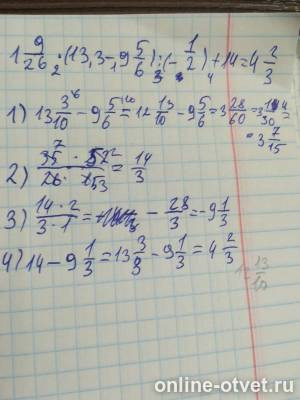 1 9/26 · (13,3 - 9 5/6) : (- 1/2) + 14 = 4 2/3
1) 13 3/10 - 9 5/6 = 12 13/10 - 9 5/6 = 3 28/60 = 3 14/30 = 3 7/15
2) 35 · 52 / 26 · 15 = 14/3
3) 14 · 2 / 3 · 1 = - 28/3 = -9 1/3
4) 14 - 9 1/3 = 13 3/3 - 9 1/3 = 4 2/3
12 13/10
online-otvet.ru